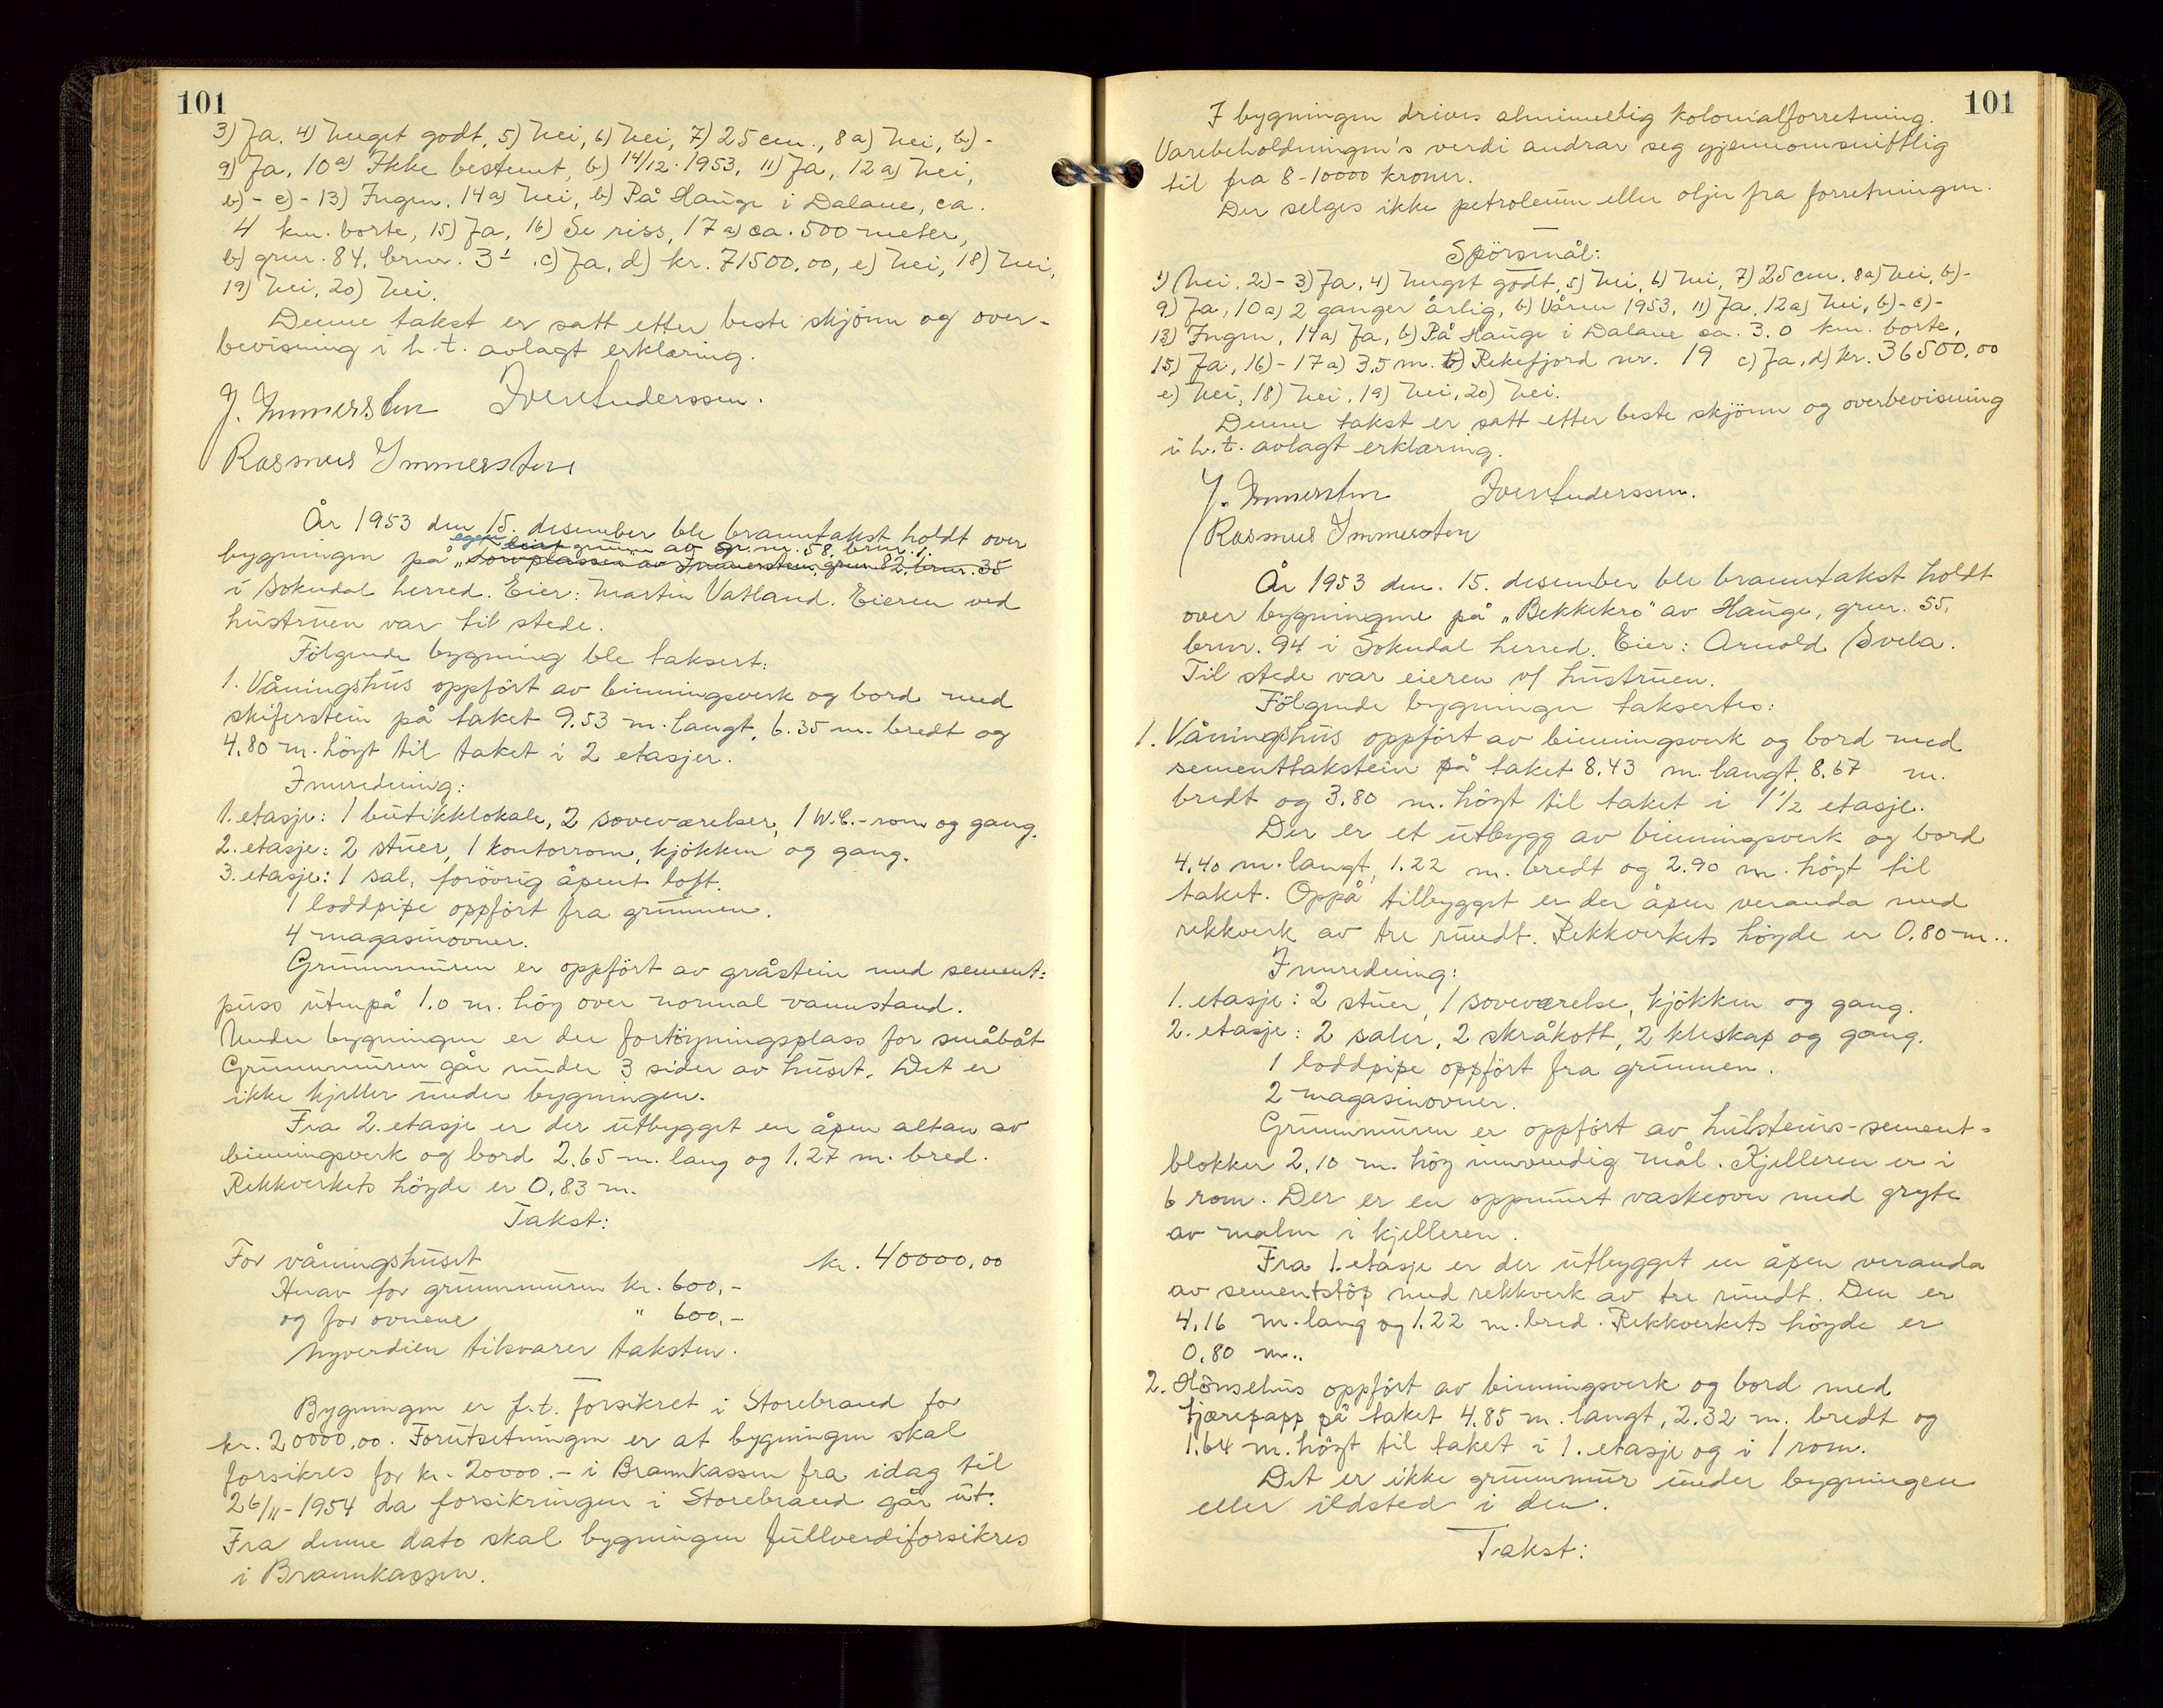 101
3) Ja. 4) Meget godt, 5) Nei, 6) Nei, 7) 25 cm., 8a) Nei, b)-
9) Ja, 10a) Ikke bestemt, b) 14/12. 1953, 11) Ja, 12a) Nei,
b)- c)- 13) Ingen, 14a) Nei, b) På Hauge i Dalane, ca.
4 km. borte, 15) Ja, 16) Se riss, 17a) ca. 500 meter,
b) gnr. 84, bnr. 31 c) Ja, d) kr. 71500,00, e) Nei, 18) Nei,
19) Nei, 20) Nei.
Denne takst er satt etter beste skjönn og over-
bevisning i h.t. avlagt erklæring.
J. Immerstein Iver Anderssen.
Rasmus Immerstein
År 1953 den 15. desember ble branntakst holdt over
egen grunn av gr.nr. 58, brnr. 1.
bygningen på "Sommplassen" av Immerstein, gnr. 82, brnr. 35
i Sokndal herred. Eier: Martin Vatland. Eieren ved
hustruen var til stede.
Fölgende bygning ble taksert:
1. Våningshus oppfört av binningsverk og bord med
skiferstein på taket 9.53 m. langt, 6.35 m. bredt og
4.80 m. höyt til taket i 2 etasjer.
Innredning:
1. etasje: 1 butikklokale, 2 soveværelser, 1 W.C.-rom og gang.
2. etasje: 2 stuer, 1 kontorrom, kjökken og gang.
3. etasje: 1 sal, forövrig åpent loft.
1 loddpipe oppfört fra grunnen.
4 magasinovner.
Grunnmuren er oppfört av gråstein med sement-
puss utenpå 1.0 m. höy over normal vannstand.
Under bygningen er der fortöyningsplass for småbåt
Grunnmuren går under 3 sider av huset. Det er
ikke kjeller under bygningen.
Fra 2. etasje er der utbygget en åpen altan av
binningsverk og bord 2.65 m. lang og 1.27 m. bred.
Rekkverkets höyde er 0.83 m.
Takst:
For våningshuset kr. 40000,00
Herav for grunnmuren kr. 600,-
og for ovnene " 600,-
Nyverdien tilsvarer taksten.
Bygningen er f.t. forsikret i Storebrand for
kr. 20000,00. Forutsetningen er at bygningen skal
forsikres for kr. 20000.- i Brannkassen fra idag til
26/11-1954 da forsikringen i Storebrand går ut.
Fra denne dato skal bygningen fullverdiforsikres
i Brannkassen.
101
I bygningen drives alminnelig kolonialforretning.
Varebeholdningen's verdi andrar seg gjennomsnittlig
til fra 8-10000 kroner.
Der selges ikke petroleum eller oljer fra forretningen.
Spörsmål:
1) Nei, 2)- 3) Ja, 4) Meget godt, 5) Nei, 6) Nei, 7) 25 cm. 8a) Nei, b)-
9) Ja, 10a) 2 ganger årlig, b) Våren 1953, 11) Ja, 12a) Nei, b)- c)-
13) Ingen, 14a) Ja, b) På Hauge i Dalane ca. 3.0 km. borte,
15) Ja, 16)- 17a) 3,5 m. b) Rekefjord nr. 19 c) Ja, d) kr. 36500,00
e) Nei, 18) Nei, 19) Nei, 20) Nei.
Denne takst er satt etter beste skjönn og overbevisning
i h.t. avlagt erklæring.
J. Immerstein Iver Anderssen.
Rasmus Immerstein
År 1953 den. 15. desember ble branntakst holdt
over bygningene på "Bekkekro" av Hauge, gnr. 55,
brnr. 94 i Sokndal herred. Eier: Arnold Svela.
Til stede var eieren v/ hustruen.
Fölgende bygninger taksertes:
1. Våningshus oppfört av binningsverk og bord med
sementtakstein på taket 8.43 m. langt, 8.67 m.
bredt og 3.80 m. höyt til taket i 1 1/2 etasje.
Der er et utbygg av binningsverk og bord
4.40 m. langt, 1.22 m. bredt og 2.90 m. höyt til
taket. Oppå tilbygget er der åpen veranda med
rekkverk av tre rundt. Rekkverkets höyde er 0.80 m..
Innredning:
1. etasje: 2 stuer, 1 soveværelse, kjökken og gang.
2. etasje: 2 saler, 2 skråkott, 2 kleskap og gang.
1 loddpipe oppfört fra grunnen.
2 magasinovner.
Grunnmuren er oppfört av hulsteins-sement-
blokker 2.10 m. höy innvendig mål. Kjelleren er i
6 rom. Der er en oppmurt vaskeovn med gryte
av malm i kjelleren.
Fra 1. etasje er der utbygget en åpen veranda
av sementstöp med rekkverk av tre rundt. Den er
4.16 m. lang og 1.22 m. bred. Rekkverkets höyde er
0.80 m..
2. Hönsehus oppfört av binningsverk og bord med
tjærepapp på taket 4.85 m. langt, 2.32 m. bredt og
1.64 m. höyt til taket i 1. etasje og i 1 rom.
Det er ikke grunnmur under bygningen
eller ildsted i den.
Takst: